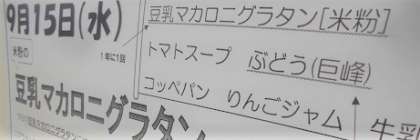 9月15日(水)
米粉の
1年に1回
豆乳マカロニグラタン
豆乳マカロニグラタン[米粉]
トマトスープ ぶどう(巨峰)
コッペパン りんごジャム 牛乳